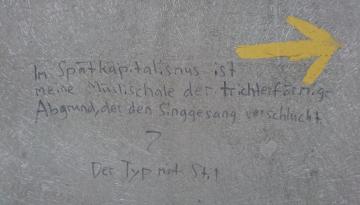 Im Spätkapitalismus ist
meine Müslischale der trichterförmige
Abgrund, der den Singgesang verschluckt
?
Der Typ mit St.1